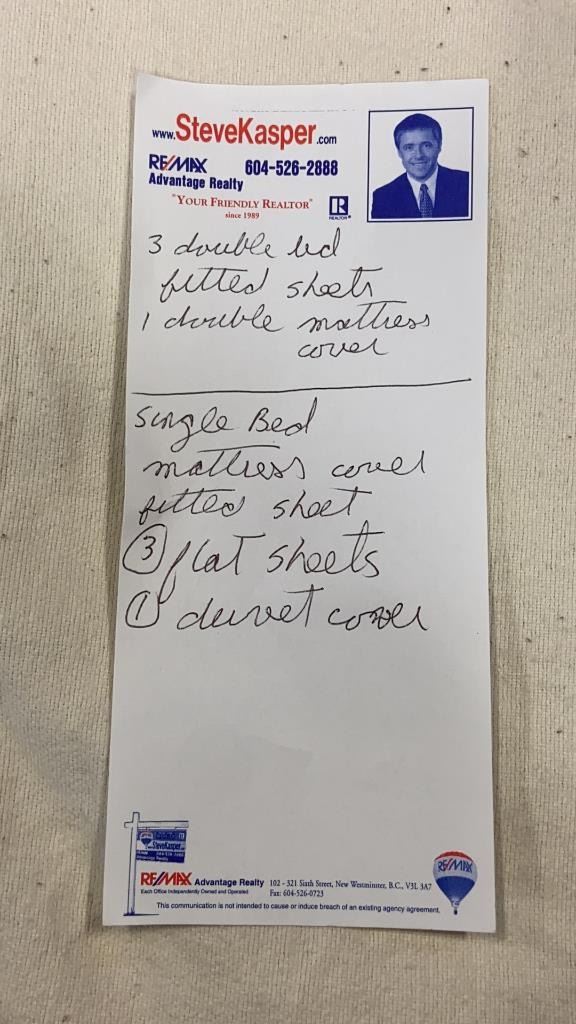 www.SteveKasper.com
RE/MAX 604-526-2888
Advantage Realty
"YOUR FRIENDLY REALTOR"
since 1989
REALTOR®
3 double bed
fitted sheets
1 double mattress
cover
Single Bed
mattress cover
fitted sheet
3 flat sheets
1 duvet cover
RE/MAX
SteveKasper.com
RE/MAX Advantage Realty 102 - 321 Sixth Street, New Westminster, B.C., V3L 3A7
Each Office Independently Owned and Operated Fax: 604-526-0723
This communication is not intended to cause or induce breach of an existing agency agreement.